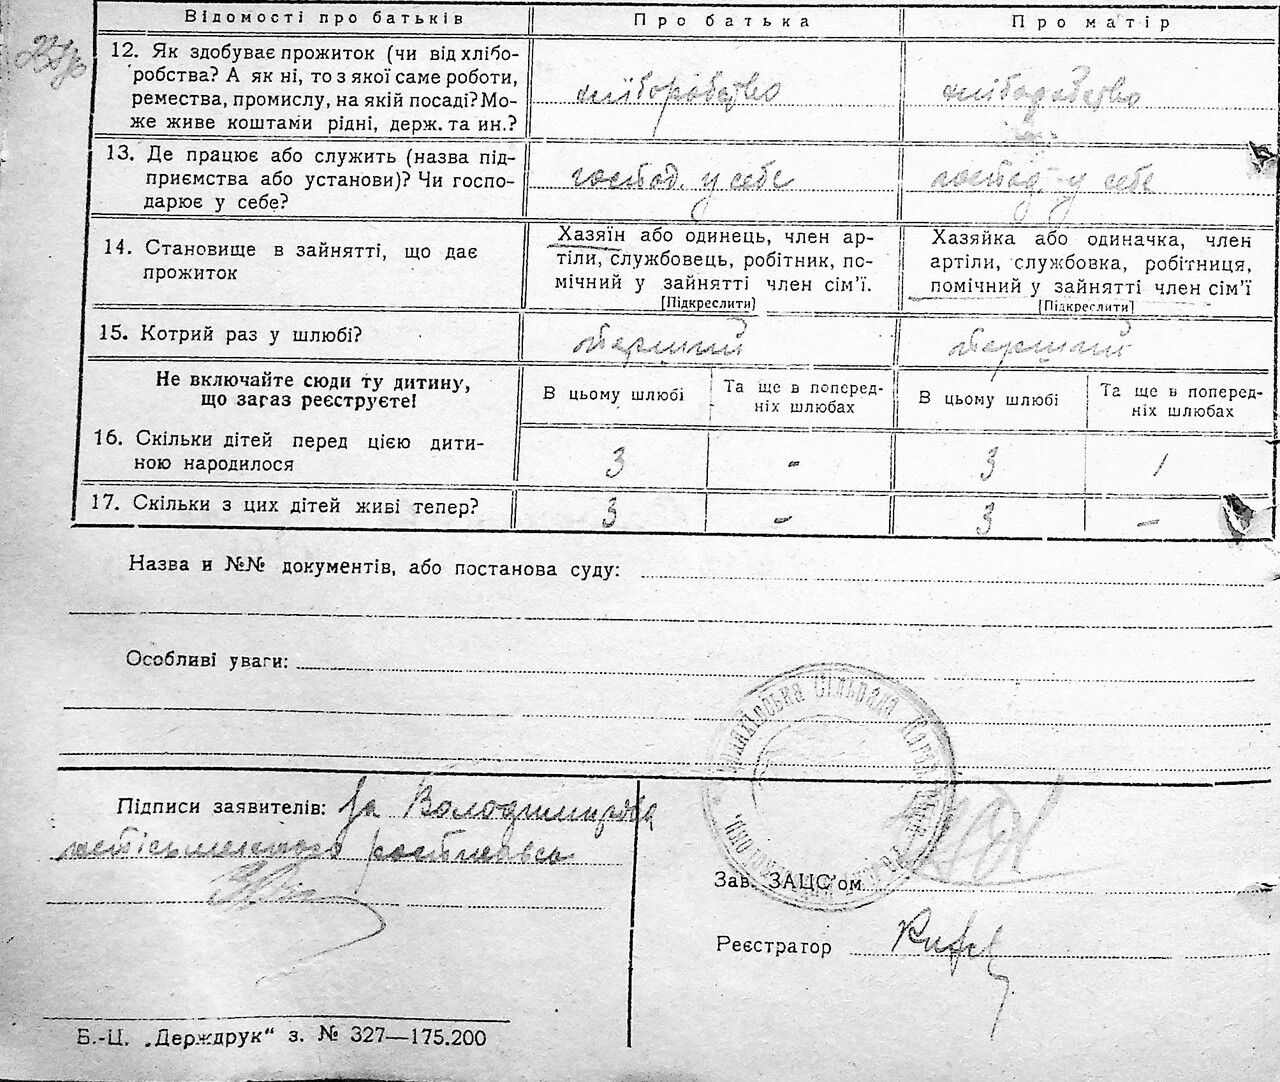 Відомості про батьків Про батька Про матір
12. Як здобуває прожиток (чи від хлібо-
робства? А як ні, то з якої саме роботи,
ремества, промислу, на якій посаді? Мо-
же живе коштами рідні, держ. та ин.?
хліборобство хліборобство
13. Де працює або служить (назва під-
приємства або установи)? Чи госпо-
дарює у себе?
господ. у себе господ. у себе
14. Становище в зайнятті, що дає
прожиток
Хазяїн або одинець, член ар-
тіли, службовець, робітник, по-
мічний у зайнятті член сім'ї.
[Підкреслити]
Хазяйка або одиначка, член
артіли, службовка, робітниця,
помічний у зайнятті член сім'ї
[Підкреслити]
15. Котрий раз у шлюбі? перший перший
Не включайте сюди ту дитину,
що зараз реєструєте!
В цьому шлюбі
Та ще в поперед-
ніх шлюбах
В цьому шлюбі
Та ще в поперед-
ніх шлюбах
16. Скільки дітей перед цією дити-
ною народилося
3 - 3 1
17. Скільки з цих дітей живі тепер?
3 - 3 -
Назва и №№ документів, або постанова суду:
Особливі уваги:
Підписи заявителів: за Володимирова
Сільрада
Зав. ЗАЦС'ом
Реєстратор
Б.-Ц. „Держдрук" з. № 327—175.200